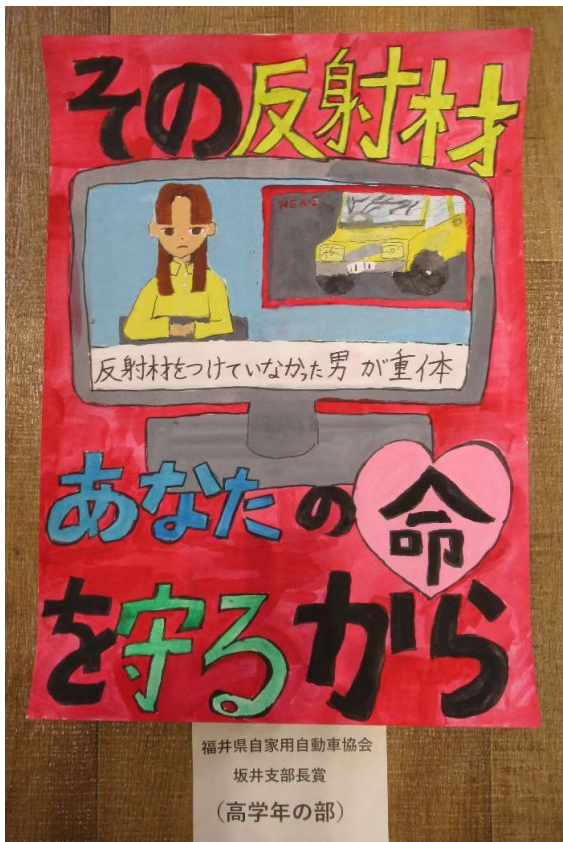 その反射材
反射材をつけていなかった男が重体
あなたの命
を守るから
福井県自家用自動車協会
坂井支部長賞
（高学年の部）